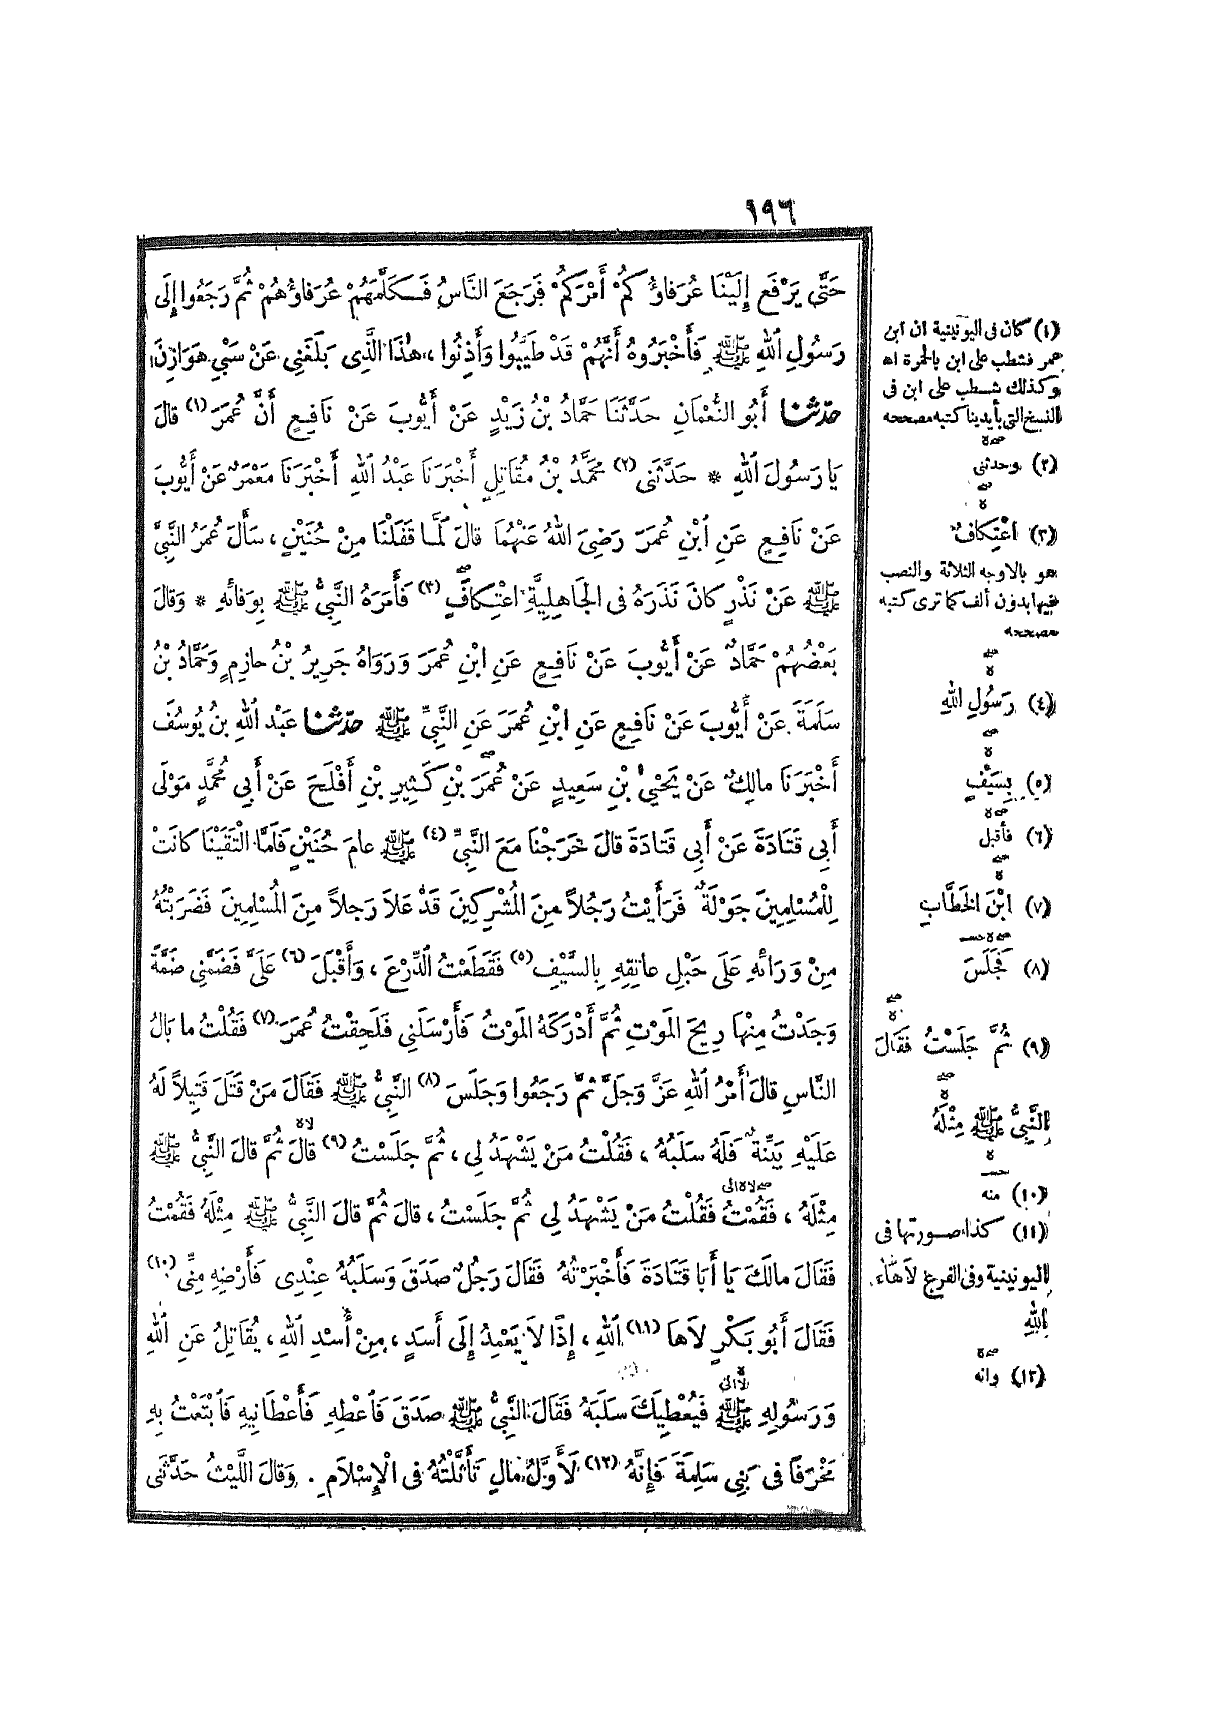 ١٩٦
حَتَّى يَرْفَعَ إِلَيْنَا عُرَفاؤُكُمْ أَمْرَكُمْ فَرَجَعَ النَّاسُ فَكَلَّمَهُمْ عُرَفاؤُهُمْ ثُمَّ رَجَعُوا إِلَى
رَسُولِ اللهِ ﷺ فَأَخْبَرُوهُ أَنَّهُمْ قَدْ طَيَّبُوا وَأَذِنُوا ، هٰذَا الَّذِي بَلَغَنِي عَنْ سَبْيِ هَوَازِنَ
حدّثنا أَبُو النُّعْمَانِ حَدَّثَنَا حَمَّادُ بْنُ زَيْدٍ عَنْ أَيُّوبَ عَنْ نَافِعٍ أَنَّ عُمَرَ (١) قالَ
يَا رَسُولَ اللهِ * حَدَّثَنِي (٢) مُحَمَّدُ بْنُ مُقَاتِلٍ أَخْبَرَنَا عَبْدُ اللهِ أَخْبَرَنَا مَعْمَرٌ عَنْ أَيُّوبَ
عَنْ نَافِعٍ عَنِ ابْنِ عُمَرَ رَضِيَ اللهُ عَنْهُمَا قالَ لَمَّا قَفَلْنَا مِنْ حُنَيْنٍ ، سَأَلَ عُمَرُ النَّبِيَّ
ﷺ عَنْ نَذْرٍ كانَ نَذَرَهُ فِي الجَاهِلِيَّةِ اعْتِكافٍ (٣) فَأَمَرَهُ النَّبِيُّ ﷺ بِوَفائِهِ * وَقالَ
بَعْضُهُمْ حَمَّادٌ عَنْ أَيُّوبَ عَنْ نَافِعٍ عَنِ ابْنِ عُمَرَ وَرَوَاهُ جَرِيرُ بْنُ حازِمٍ وَحَمَّادُ بْنُ
سَلَمَةَ عَنْ أَيُّوبَ عَنْ نَافِعٍ عَنِ ابْنِ عُمَرَ عَنِ النَّبِيِّ ﷺ حدّثنا عَبْدُ اللهِ بْنُ يُوسُفَ
أَخْبَرَنَا مالِكٌ عَنْ يَحْيَى بْنِ سَعِيدٍ عَنْ عُمَرَ بْنِ كَثِيرِ بْنِ أَفْلَحَ عَنْ أَبِي مُحَمَّدٍ مَوْلَى
أَبِي قَتَادَةَ عَنْ أَبِي قَتَادَةَ قالَ خَرَجْنَا مَعَ النَّبِيِّ (٤) ﷺ عامَ حُنَيْنٍ فَلَمَّا الْتَقَيْنَا كانَتْ
لِلْمُسْلِمِينَ جَوْلَةٌ فَرَأَيْتُ رَجُلاً مِنَ المُشْرِكِينَ قَدْ عَلاَ رَجلاً مِنَ المُسْلِمِينَ فَضَرَبْتُهُ
مِنْ وَرَائِهِ عَلَى حَبْلِ عاتِقِهِ بِالسَّيْفِ (٥) فَقَطَعْتُ الدِّرْعَ ، وَأَقْبَلَ (٦) عَلَيَّ فَضَمَّنِي ضَمَّةً
وَجَدْتُ مِنْهَا رِيحَ المَوْتِ ثُمَّ أَدْرَكَهُ المَوْتُ فَأَرْسَلَنِي فَلَحِقْتُ عُمَرَ (٧) فَقُلْتُ ما بَالُ
النَّاسِ قالَ أَمْرُ اللهِ عَزَّ وَجَلَّ ثُمَّ رَجَعُوا وَجَلَسَ (٨) النَّبِيُّ ﷺ فَقَالَ مَنْ قَتَلَ قَتِيلاً لَهُ
عَلَيْهِ بَيِّنَةٌ فَلَهُ سَلَبُهُ ، فَقُلْتُ مَنْ يَشْهَدُ لِي ، ثُمَّ جَلَسْتُ (٩) قالَ ثُمَّ قالَ النَّبِيُّ ﷺ
مِثْلَهُ ، فَقُمْتُ فَقُلْتُ مَنْ يَشْهَدُ لِي ثُمَّ جَلَسْتُ ، قالَ ثُمَّ قالَ النَّبِيُّ ﷺ مِثْلَهُ فَقُمْتُ
فَقَالَ مالَكَ يَا أَبَا قَتَادَةَ فَأَخْبَرْتُهُ فَقَالَ رَجُلٌ صَدَقَ وَسَلَبُهُ عِنْدِي فَأَرْضِهِ مِنِّي (١٠)
فَقَالَ أَبُو بَكْرٍ لاَهَا (١١) اللهِ ، إِذًا لاَ يَعْمِدُ إِلَى أَسَدٍ ، مِنْ أُسْدِ اللهِ ، يُقَاتِلُ عَنِ اللهِ
وَرَسُولِهِ ﷺ فَيُعْطِيَكَ سَلَبَهُ فَقَالَ النَّبِيُّ ﷺ صَدَقَ فَأَعْطِهِ فَأَعْطَانِيهِ فَابْتَعْتُ بِهِ
مَخْرَفًا فِي بَنِي سَلِمَةَ فَإِنَّهُ (١٢) لَأَوَّلُ مالٍ تَأَثَّلْتُهُ فِي الْإِسْلاَمِ . وَقالَ اللَّيْثُ حَدَّثَنِي
(١) كان فى اليونينية ان ابن
عمر فشطب على ابن بالحمرة اه
وكذلك شطب على ابن فى
النسخ التى بأيدينا كتبه مصححه
(٢) وحدثنى
(٣) اعْتِكافٌ
هو بالاوجه الثلاثة والنصب
فيها بدون ألف كما ترى كتبه
مصححه
(٤) رَسُولِ اللهِ
(٥) بِسَيْفٍ
(٦) فأقبل
(٧) ابْنَ الخَطَّابِ
(٨) فَجَلَسَ
(٩) ثُمَّ جَلَسْتُ فَقَالَ
النَّبِيُّ ﷺ مِثْلَهُ
(١٠) منه
(١١) كذا صورتها فى
اليونينية وفى الفرع لاَهَاءَ
اللهِ
(١٢) وانه